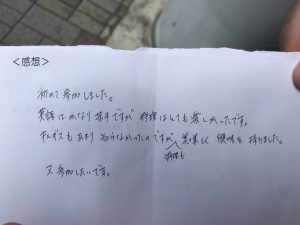 <感想>
初めて参加しました。
英語はかなり苦手ですが 料理はとても楽しかったです。
もあまり知らなかったのですが 美味しく 興味を 持ちました。
料理も
又参加したいです。